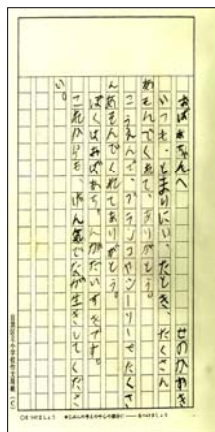 おばあちゃんへ
せのかわき
いつも、とまりにいったとき、たくさん
あそんでくれて、ありがとう。
こうえんで、ブランコやシーソーでたくさ
んあそんでくれてありがとう。
ぼくはおばあちゃんがだいすきです。
これからも、げん気でなが生きしてくださ
い。